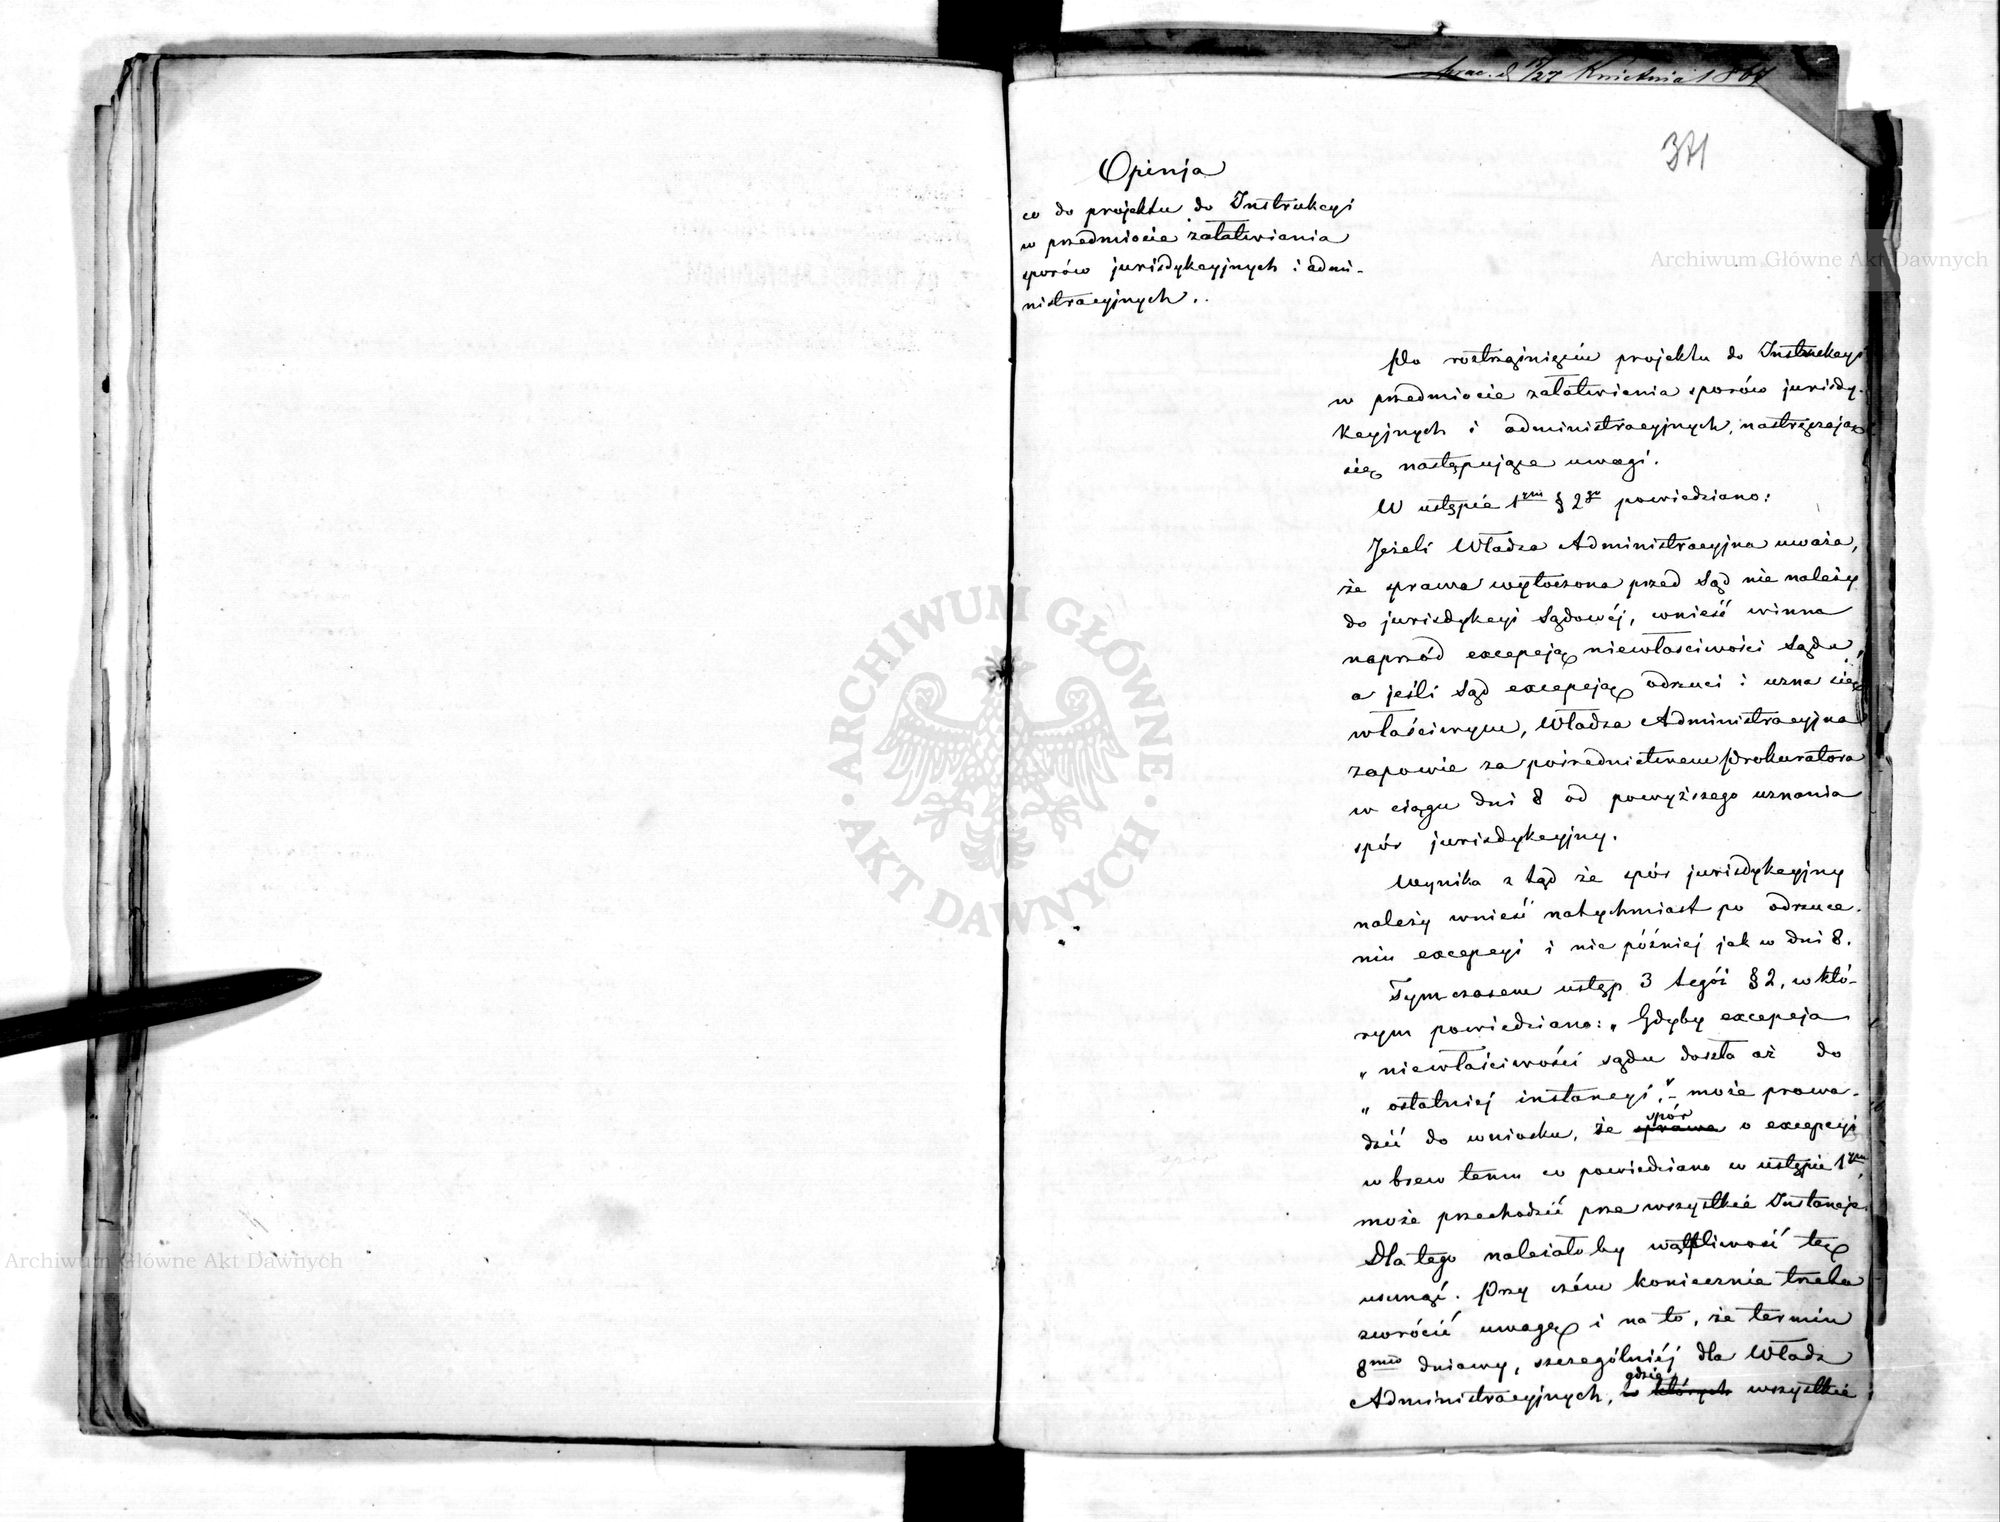 d. 15/27 Kwietnia 1867
371
Opinja
co do projektu do Instrukcyi
w przedmiocie załatwiania
sporów jurisdykcyjnych i admi-
nistracyjnych.
Po roztrząśnięciu projektu do Instrukcyi
w przedmiocie załatwienia sporów jurisdy-
kcyjnych i administracyjnych, nastręczają
się następujące uwagi.
W ustępie 1ym § 2go powiedziano:
Jeżeli Władza Administracyjna uważa,
że sprawa wytoczona przed Sąd nie należy
do jurisdykcyi Sądowéj, wnieść winna
naprzód excepcją niewłaściwości Sądu,
a jeśli Sąd excepcję odrzuci i uzna się
właściwym, Władza Administracyjna
zapowie za pośrednictwem Prokuratora
w ciągu dni 8 od powyższego uznania
spór jurisdykcyjny.
Wynika z tąd że spór jurisdykcyjny
należy wnieść natychmiast po odrzuce-
niu excepcyi i nie później jak w dni 8.
Tymczasem ustęp 3 tegóż § 2, w któ-
rym powiedziano: „Gdyby excepcja
„niewłaściwości sądu doszła aż do
„ostatniej instancyi," może prowa-
dzić do wniosku, że sprawa spór o excepcyi
wbrew temu co powiedziano w ustępie 1ym,
może przechodzić prze wszystkie Instancje.
Dla tego należałoby wątpliwość tę
usunąć. Przy czém koniecznie trzeba
zwrócić uwagę i na to, że termin
8mio dniowy, szczególniéj dla Władz
Administracyjnych, w których gdzie wszystkie
ARCHIWUM GŁÓWNE AKT DAWNYCH
Archiwum Główne Akt Dawnych
Archiwum Główne Akt Dawnych